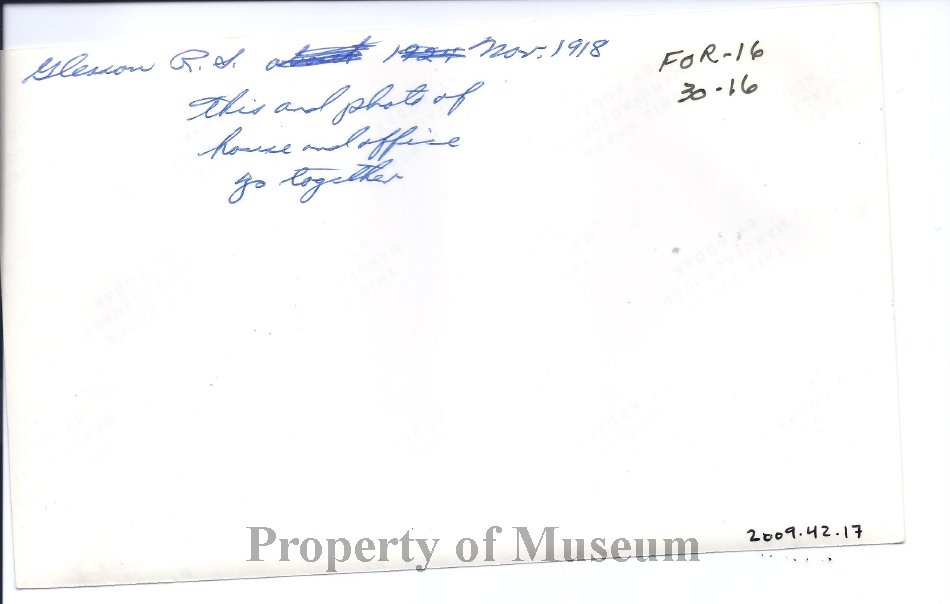 Gleason R.S. about 1924 Nov. 1918
FOR-16
30-16
this and photo of
house and office
go together
Property of Museum
2009.42.17